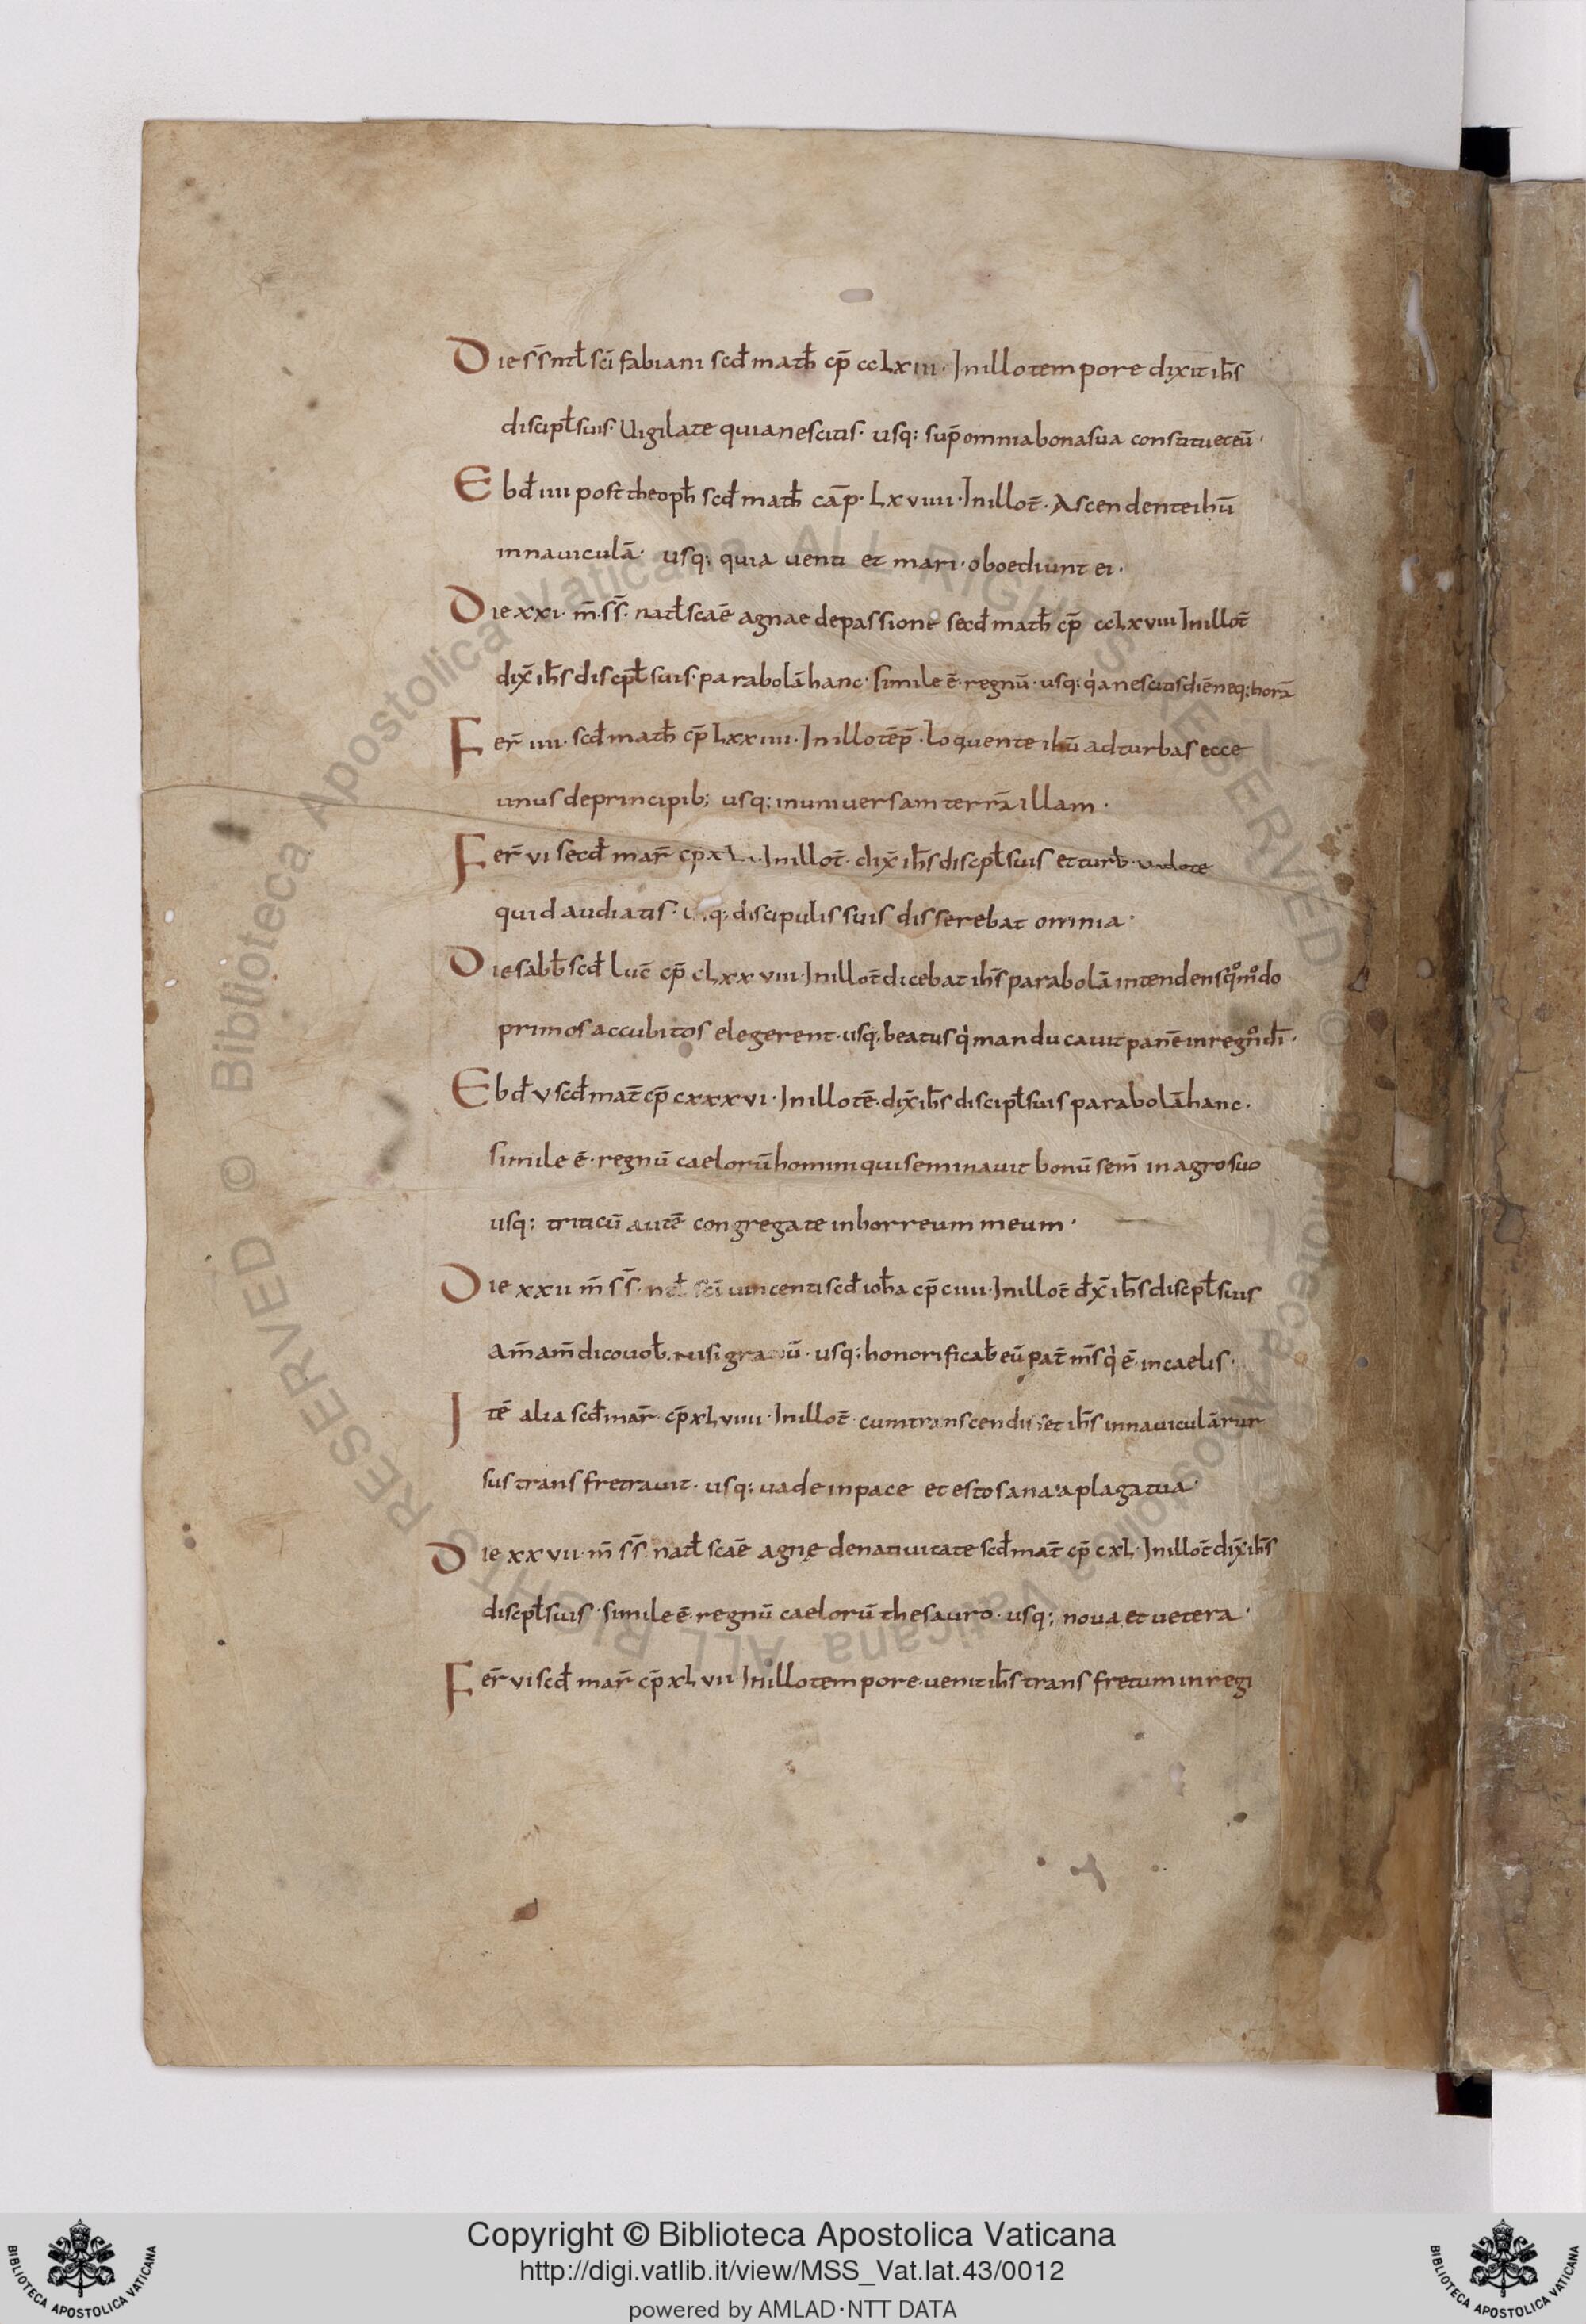 Die s̄s̄ natł sc̄i fabiani scd̄ math̄ cp̄ ccLxiii· In illo tempore dixit ih̄s
discipł suis· Uigilate quia nescitis· usq: sup̄ omnia bona sua constituet eū·
Ebd̄ iiii post theoph̄ scd̄ math̄ cāp· Lxviiii· In illo t̄· Ascendente ih̄ū
in nauiculā· usq: quia uenti et mari· oboediunt ei·
Die xxi· m̄· s̄s̄· natł scāe agnae de passione secd̄ math̄ cp̄ ccLxviii In illo t̄
dix̄ ih̄s discpł suis· parabolā hanc· simile ē· regnū· usq: qia nescitis diē neq: horā
Fer̄ iiii· scd̄ math̄ cp̄ Lxxiiii· In illo tēp̄· loquente ih̄ū ad turbas ecce
unus de principib; usq: in uniuersam terrā illam·
Fer̄ vi secd̄ mar̄ cp̄ xL In illo t̄· dix̄ ih̄s discpł suis et turb̄· uidete
quid audiatis· discipulis suis disserebat omnia·
Die sabb̄ scd̄ luc̄ cp̄ cLxxviii· In illo t̄ dicebat ih̄s parabolā intendens qomodo
primos accubitos elegerent· usq: beatus qi manducauit panē in regno dī·
Ebd̄ v scd̄ mat̄ cp̄ cxxxvi· In illo tē· dix̄ ih̄s discipł suis parabolā hanc·
simile ē· regnū caelorū homini qui seminauit bonū sem̄ in agro suo
usq: triticū autē congregate in horreum meum·
Die xxii m̄ s̄s̄· sc̄i uincenti scd̄ ioh̄a cp̄ ciiii· In illo t̄ dx̄ ih̄s discpł suis
am̄ am̄ dico uob̄· nisi granū· usq: honorificab̄ eū pat̄ m̄s qi ē· in caelis·
Itē alia scd̄ mar̄· cp̄ xLviiii· In illo t̄· cum transcendisset ih̄s in nauiculā rur
sus trans fretauit· usq: uade in pace et esto sana a plaga tua·
Die xxvii· m̄ s̄s̄· natł scāe agnę de natiuitate scd̄ mat̄ cp̄ cxL· In illo t̄ dix̄ ih̄s
discpł suis· simile ē· regnū caelorū thesauro· usq: noua et uetera·
Fer̄ vi scd̄ mar̄ cp̄ xLvii· In illo tempore· uenit ih̄s trans fretum in regi
Copyright © Biblioteca Apostolica Vaticana
http://digi.vatlib.it/view/MSS_Vat.lat.43/0012
powered by AMLAD·NTT DATA
BIBLIOTECA APOSTOLICA VATICANA
BIBLIOTECA APOSTOLICA VATICANA